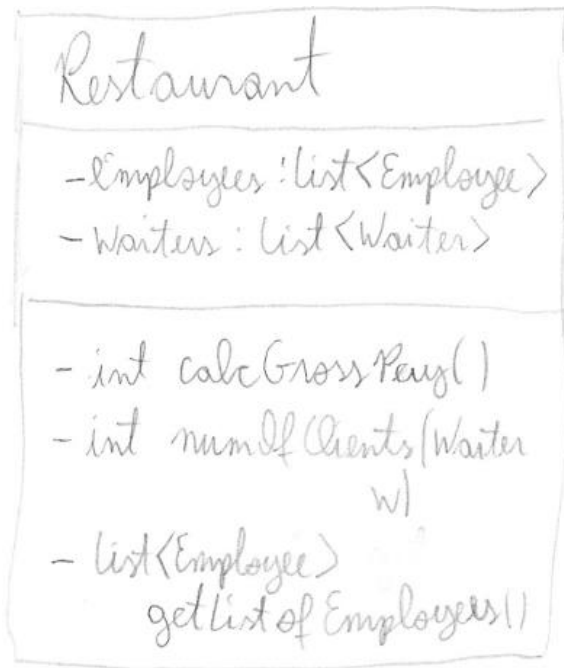 Restaurant
- Employees : List<Employee>
- Waiters : List<Waiter>
- int calcGrossPay()
- int numOfClients(Waiter
w)
- List<Employee>
getListofEmployees()